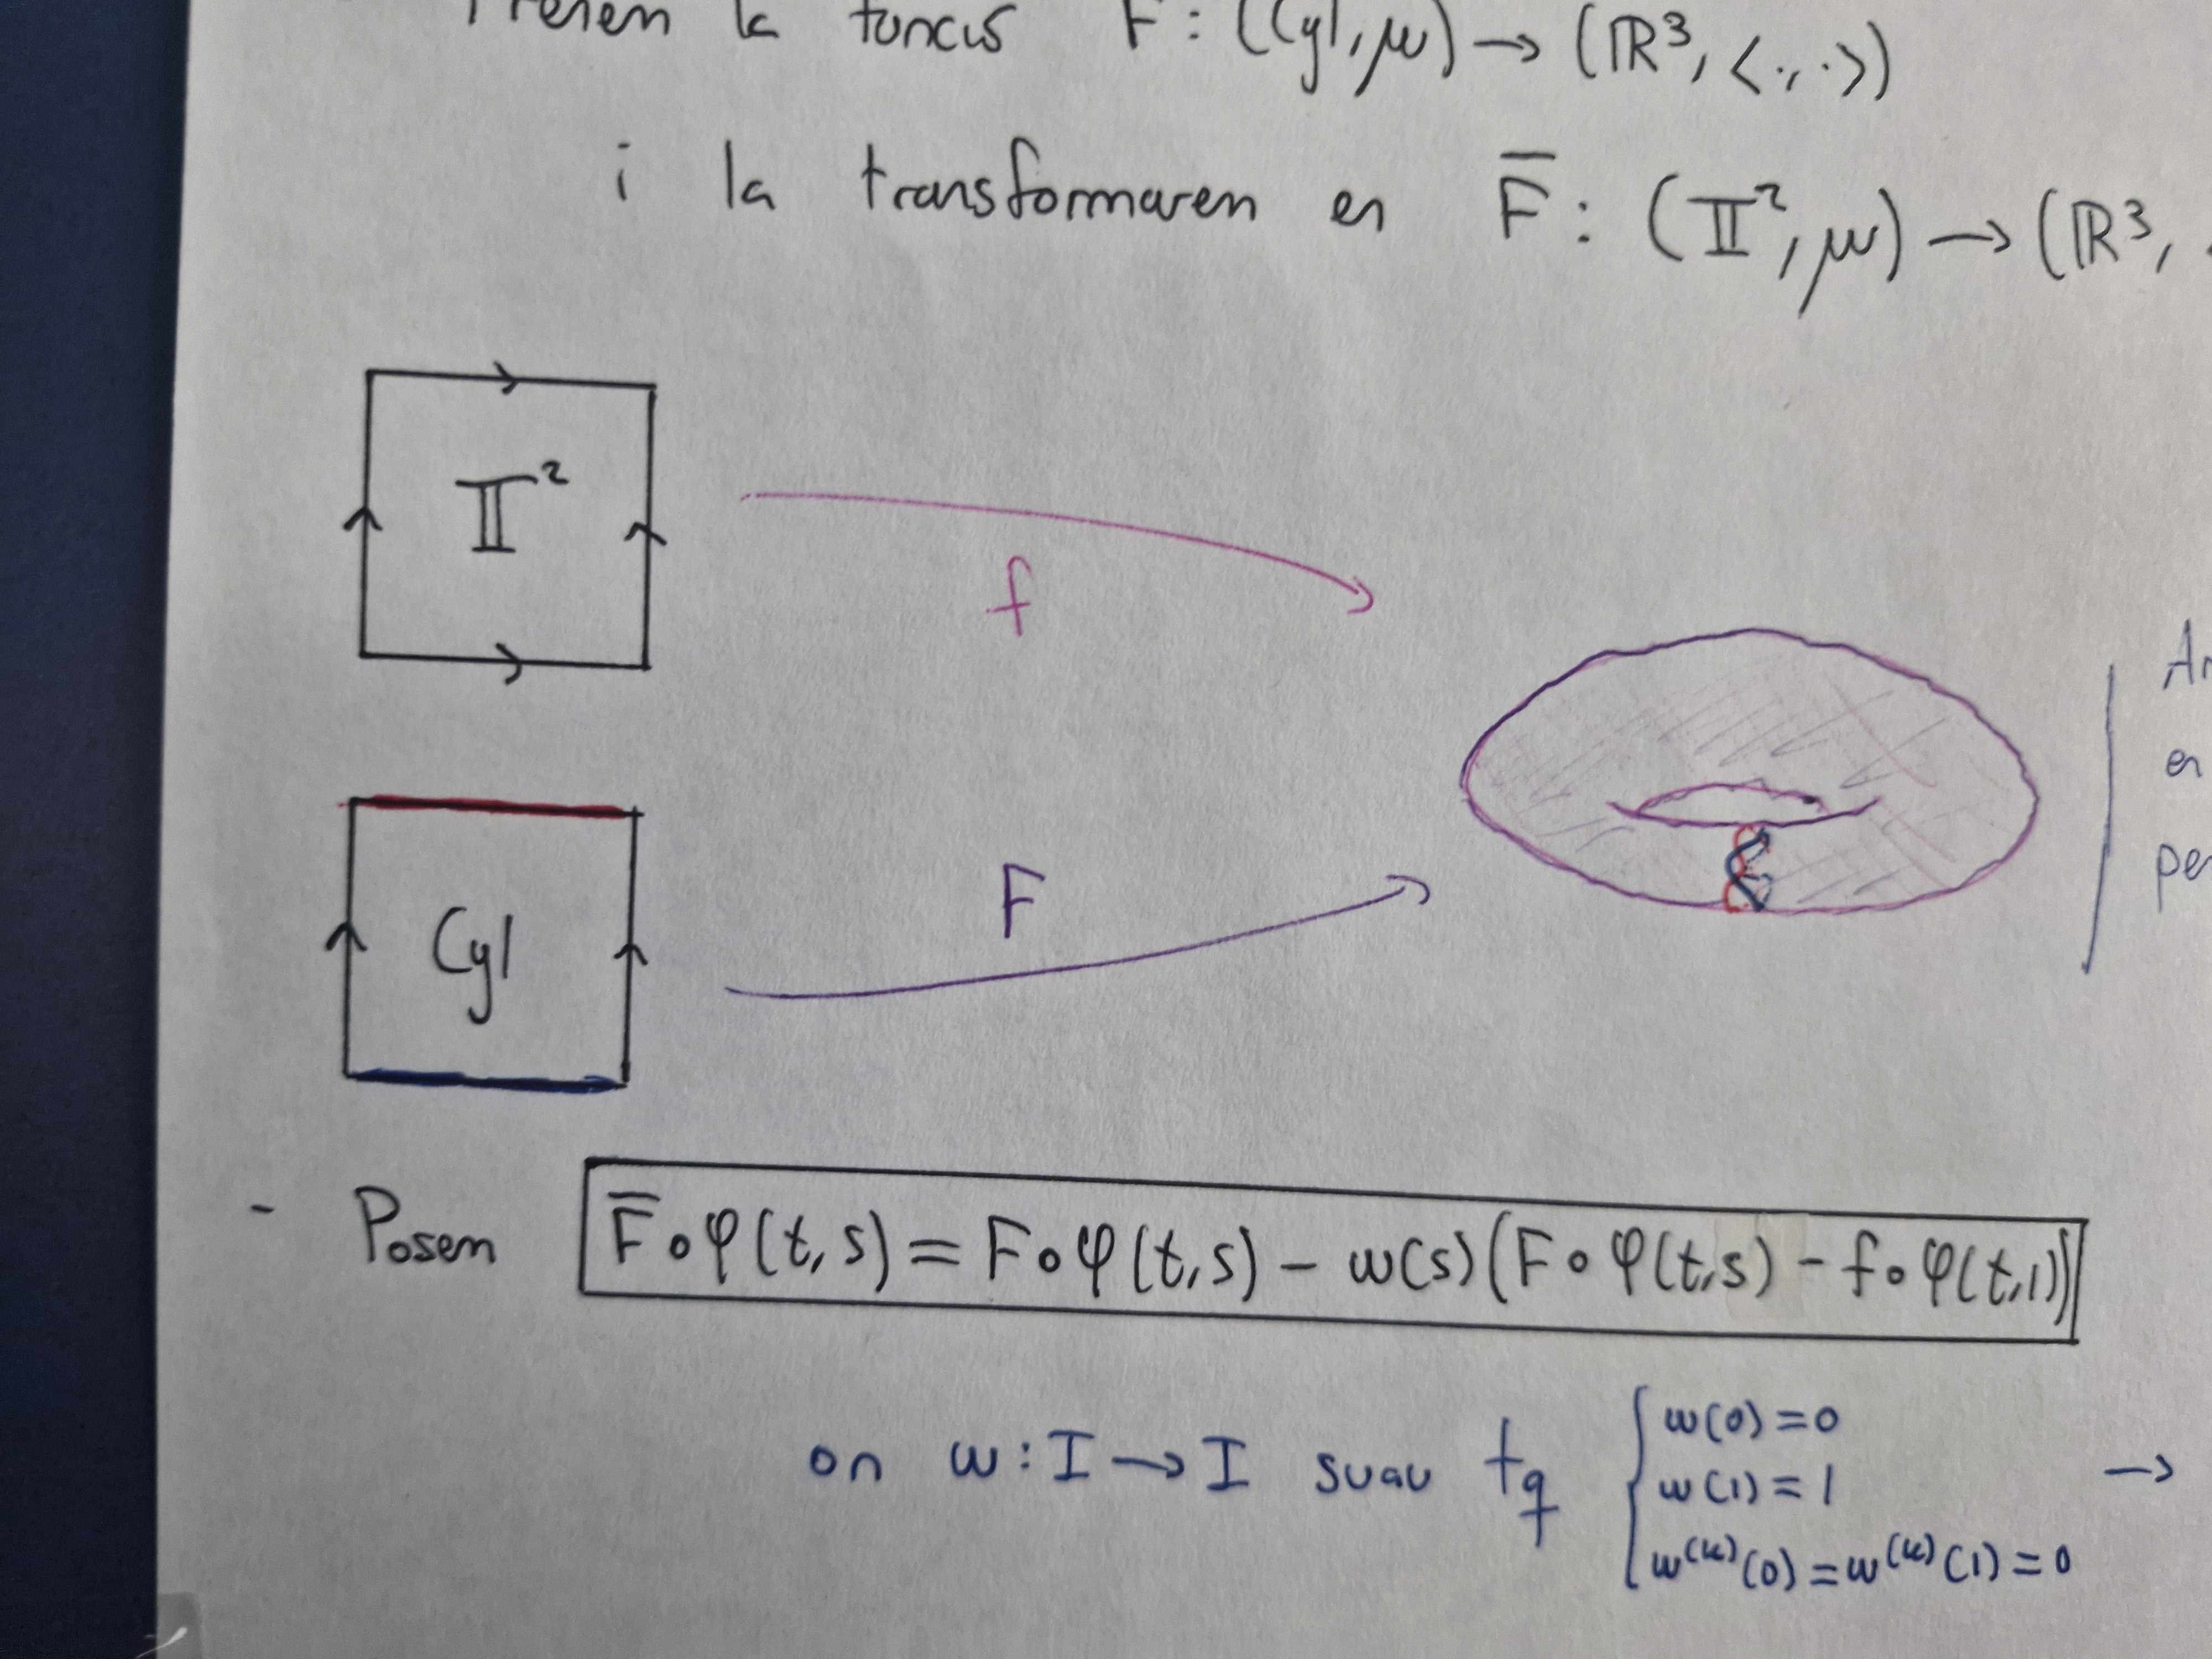 la funció F : (Cyl, μ) → (ℝ³, <·,·>)
i la transformarem en F̅ : (𝕋², μ) → (ℝ³,
𝕋²
f
An
en
per
Cyl
F
- Posem F̅∘φ(t,s) = F∘φ(t,s) - w(s)(F∘φ(t,s) - f∘φ(t,1))
on w : I → I suau tq { w(0) = 0
w(1) = 1 →
w⁽ᵏ⁾(0) = w⁽ᵏ⁾(1) = 0